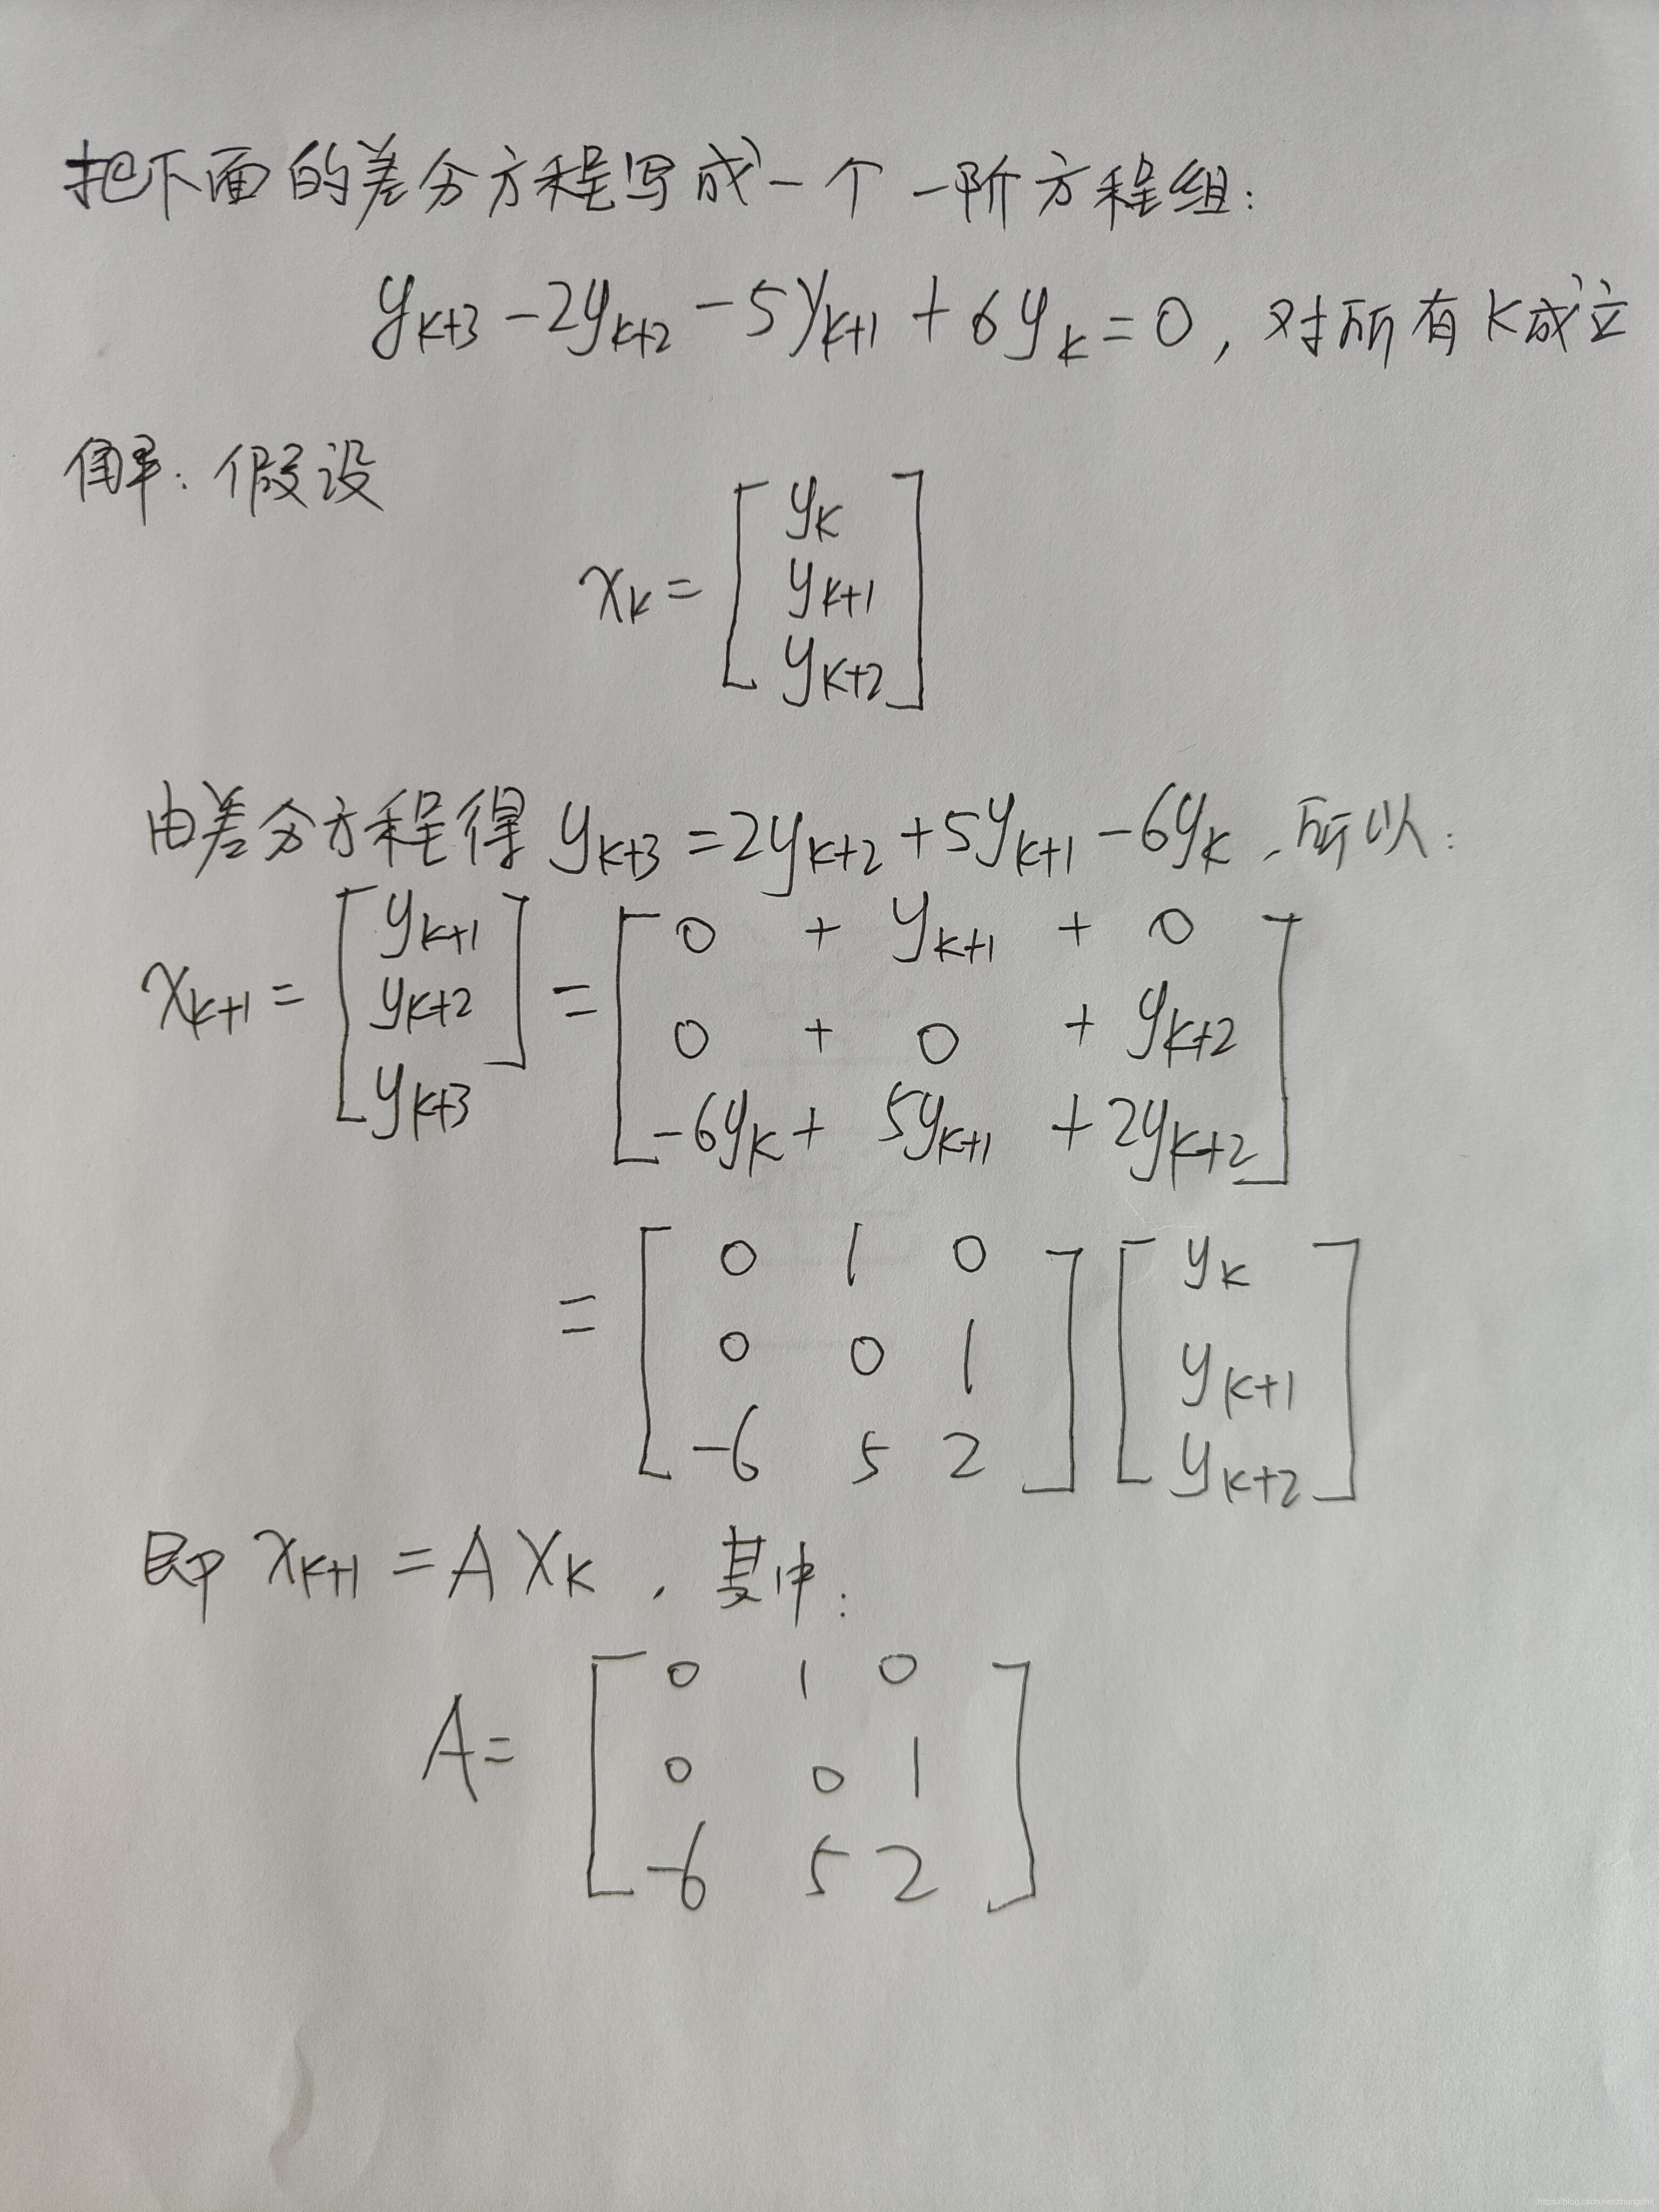 把下面的差分方程写成一个一阶方程组:
y_{k+3} - 2y_{k+2} - 5y_{k+1} + 6y_k = 0, 对所有k成立
解: 假设
x_k = [ y_k ; y_{k+1} ; y_{k+2} ]
由差分方程得 y_{k+3} = 2y_{k+2} + 5y_{k+1} - 6y_k, 所以:
x_{k+1} = [ y_{k+1} ; y_{k+2} ; y_{k+3} ] = [ 0 + y_{k+1} + 0 ; 0 + 0 + y_{k+2} ; -6y_k + 5y_{k+1} + 2y_{k+2} ]
= [ 0 1 0 ; 0 0 1 ; -6 5 2 ] [ y_k ; y_{k+1} ; y_{k+2} ]
即 x_{k+1} = A x_k, 其中:
A = [ 0 1 0 ; 0 0 1 ; -6 5 2 ]